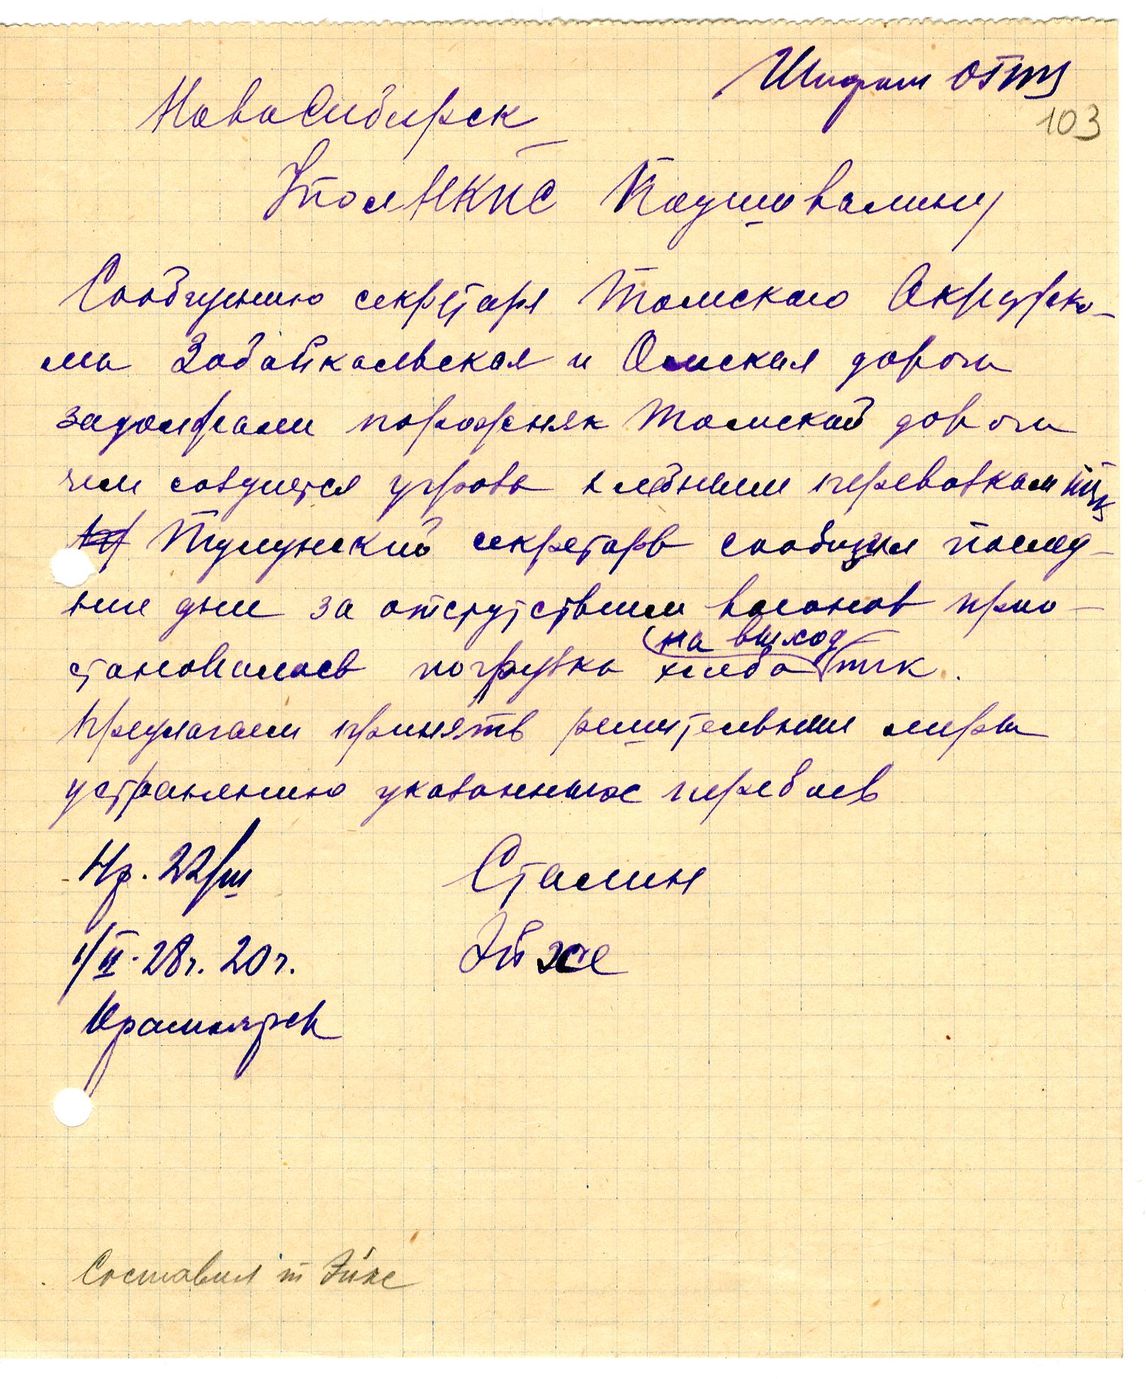 Шифром ОГПУ
103
Новосибирск
УполНКПС
Сообщению секретаря Томского Окружко-
ма Забайкальская и Омская дороги
задолжали порожняк Томской дороги
чем создается угроза хлебным перевозкам тчк
Тулунский секретарь сообщил послед-
ние дни за отсутствием вагонов прио-
становилась погрузка хлеба на выход тчк.
Предлагаем принять решительные меры
устранению указанных перебоев
Нр. 22/ш
Сталин
1/II-28г. 20г.
Эйхе
Красноярск
Составил т Эйхе